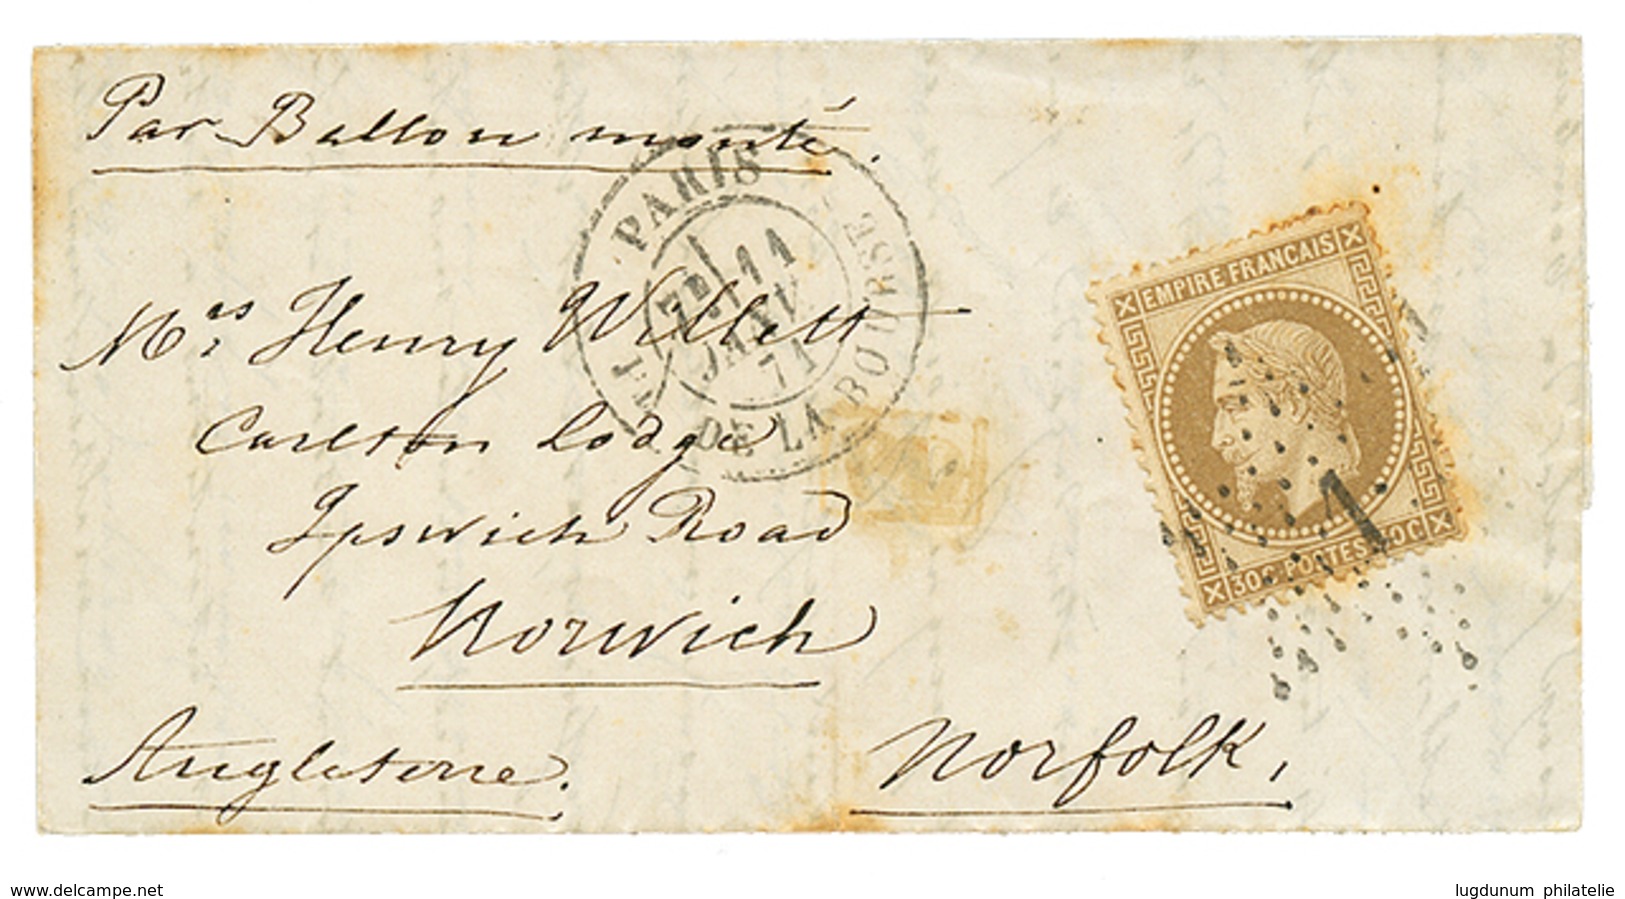 Par Ballon monté.
PARIS
PL. DE LA BOURSE
7E 11
JANV.
71
Mrs Henry Willett
Carlton Lodge
Ipswich Road
Norwich
Angleterre.
Norfolk,
EMPIRE FRANCAIS
30C POSTES 30C
1
www.delcampe.net
lugdunum philatelie